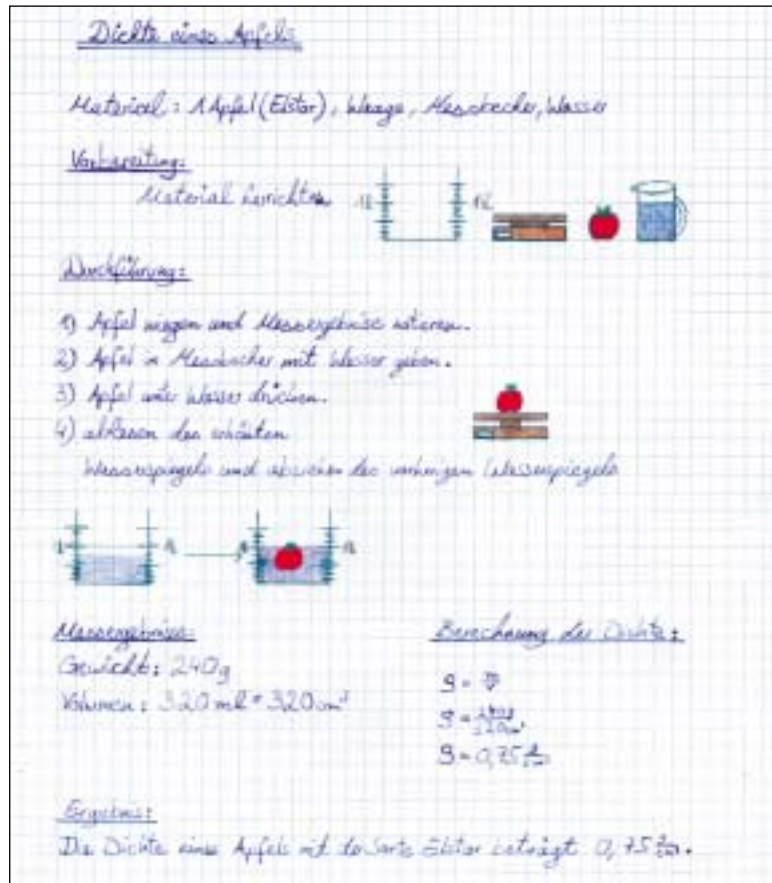 Dichte eines Apfels
Material: 1 Apfel (Elstar), Waage, Messbecher, Wasser
Vorbereitung:
Material herrichten
1l 1l
Durchführung:
1) Apfel wiegen und Messergebnise notieren.
2) Apfel in Messbecher mit Wasser geben.
3) Apfel unter Wasser drücken.
4) ablesen des erhöhten
Wasserspiegels und abziehen des vorherigen Wasserspiegels
Messergebnisse:
Gewicht: 240g
Volumen: 320 ml = 320 cm³
Berechnung der Dichte:
ρ = m/V
ρ = 240g/320cm³
ρ = 0,75 g/cm³
Ergebnis:
Die Dichte eines Apfels mit der Sorte Elstar beträgt 0,75 g/cm³.